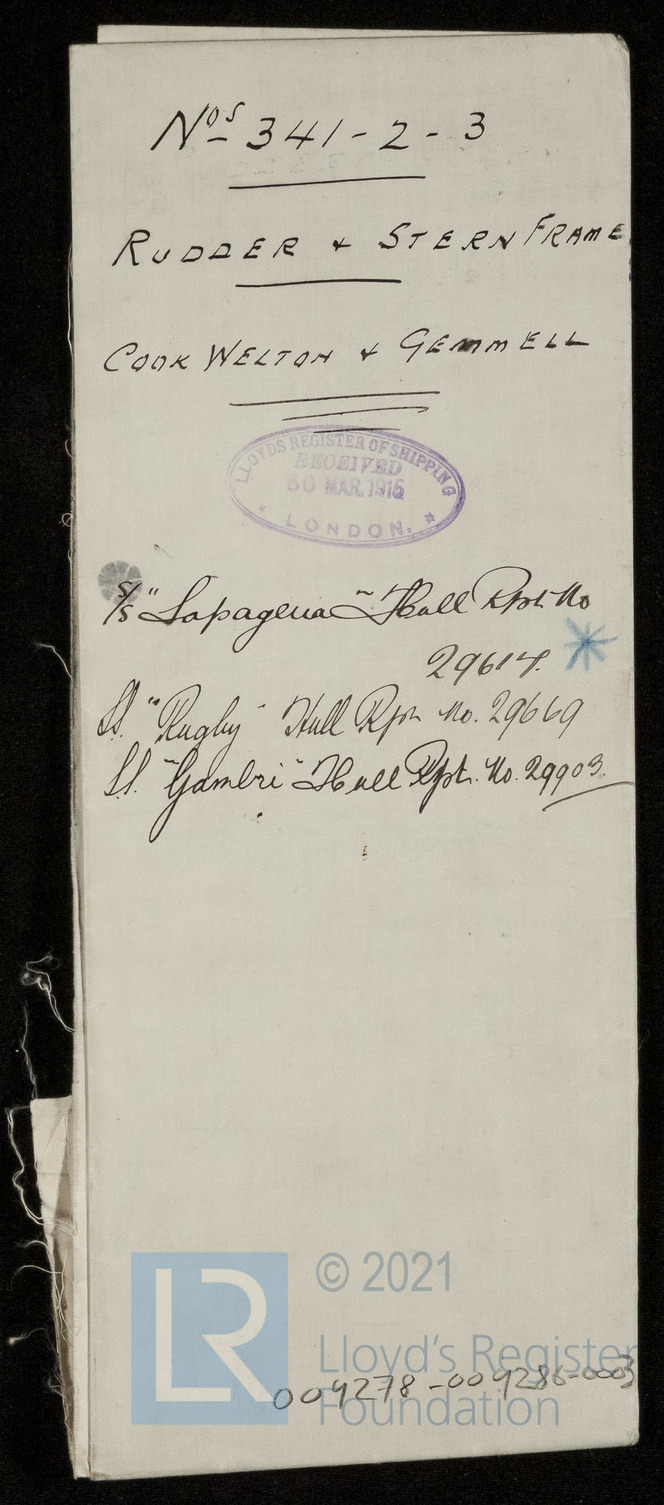 Nos 341-2-3
RUDDER & STERN FRAME
COOK WELTON & GEMMELL
LLOYDS REGISTER OF SHIPPING
RECEIVED
30 MAR. 1915
* LONDON. *
S/S "Lapageria" Hull Rpt. No
29614.
S.S. "Rugby" Hull Rpt. No. 29669
S.S. "Gambri" Hull Rpt. No. 29903.
LR
© 2021
Lloyd's Register
Foundation
009278-009286-0003